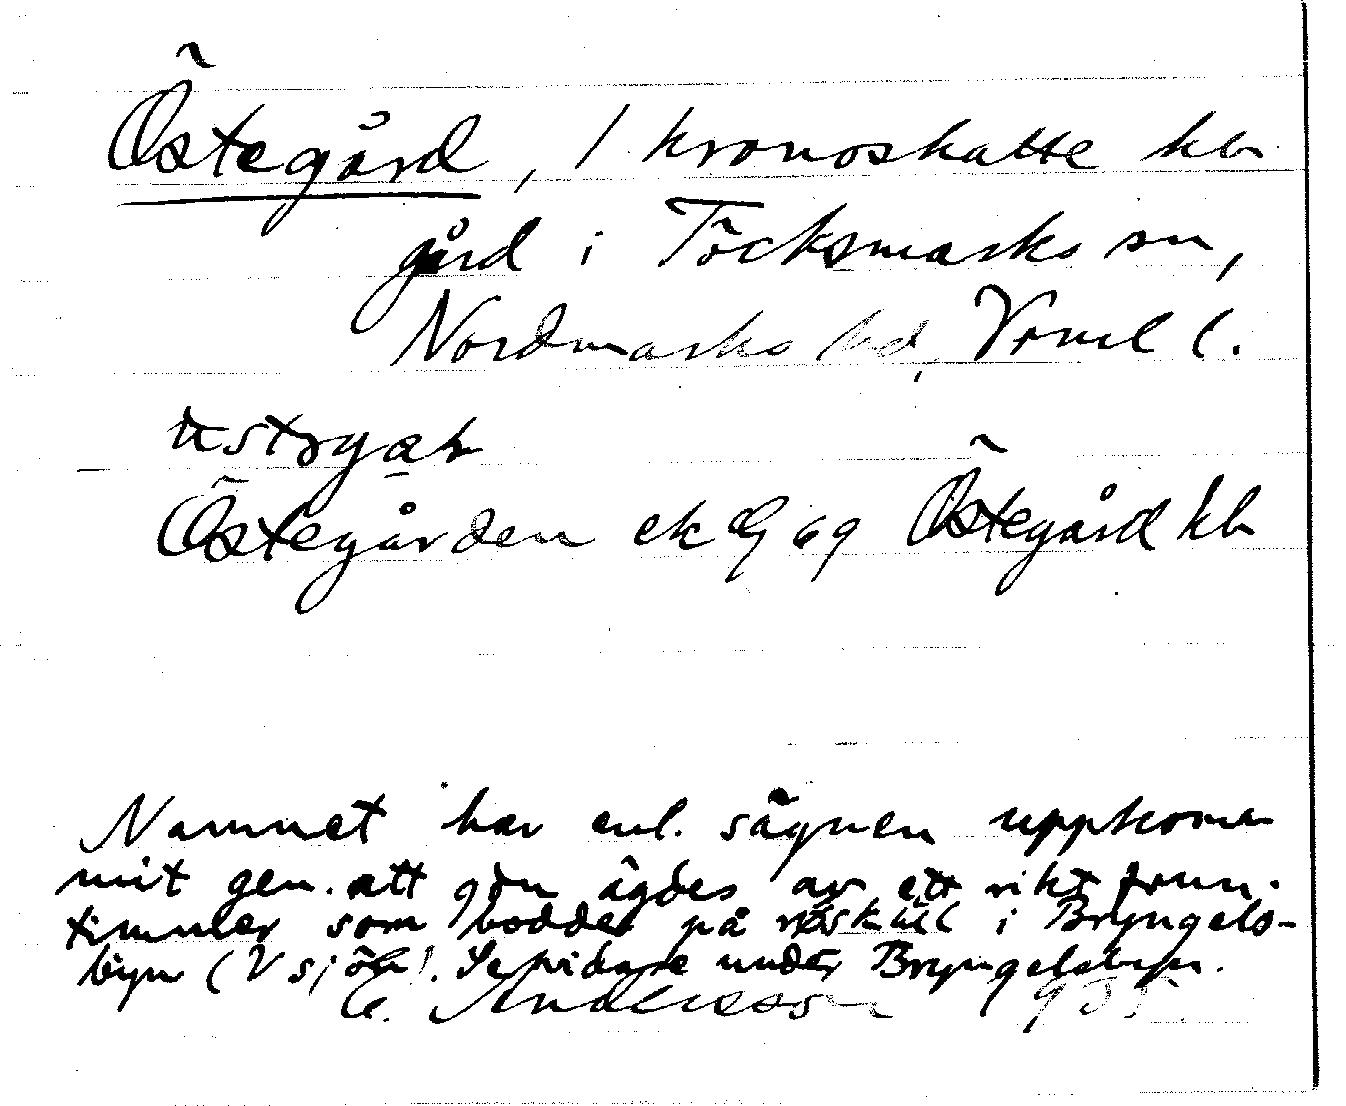 Östegård, 1 kronoskatte hb
gård i Töcksmarks sn,
Nordmarks hd, Vrml l.
Östegården ek G 69 Östegård hb
Namnet har enl. sägnen uppkom-
mit gen. att gdn ägdes av ett rikt frun-
timmer som bodde på i Bryngels-
byn (V sjön). Se vidare under Bryngelsbyn.
E. Andersson 1935.